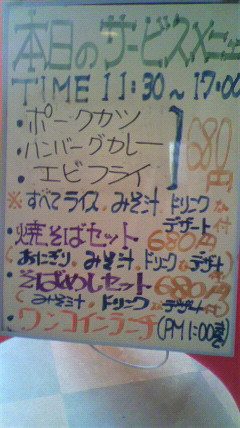 本日のサービスメニュー
TIME 11:30~17:00
・ポークカツ
・ハンバーグカレー
・エビフライ
680円
※すべてライス、みそ汁、ドリンク
デザート付
・焼そばセット 680円
(おにぎり、みそ汁、ドリンク、デザート付)
・そばめしセット 680円
(みそ汁、ドリンク、デザート付)
・ワンコインランチ(PM1:00まで)